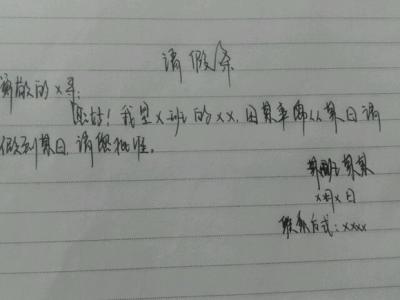 请假条
敬的x导:
您好!我是x班的xx,因某事需从某日请
假到某日,请您批准。
某某
x月x日
联系方式:xxxx